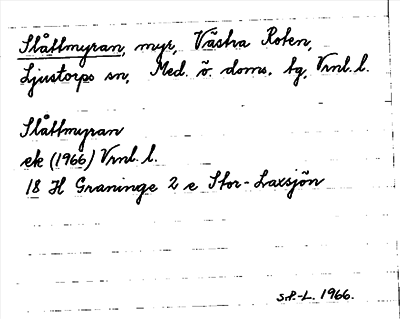 Slåttmyran, myr, Västra Roten,
Ljustorps sn, Med. ö. doms. tg, Vrnl. l.
Slåttmyran
ek (1966) Vrnl. l.
18 H Graninge 2 e Stor-Laxsjön
S.P.-L. 1966.